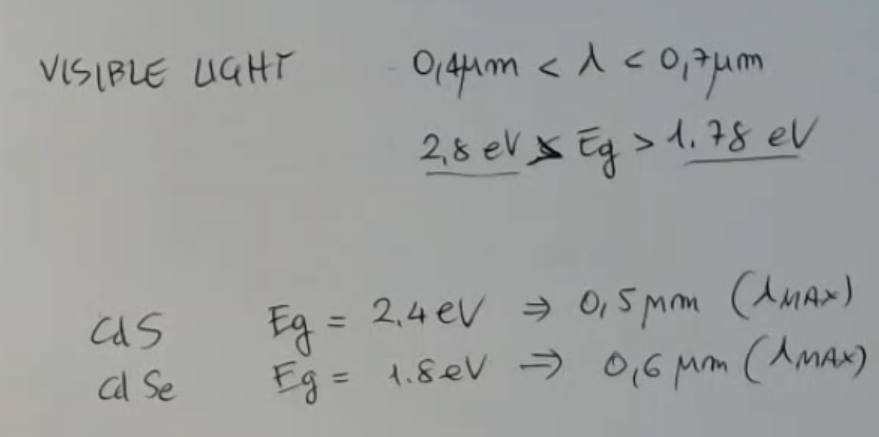 VISIBLE LIGHT 0,4μm < λ < 0,7μm
2,8 eV > Eg > 1.78 eV
CdS Eg = 2.4 eV ⇒ 0,5 μm (λMAX)
CdSe Eg = 1.8 eV ⇒ 0,6 μm (λMAX)